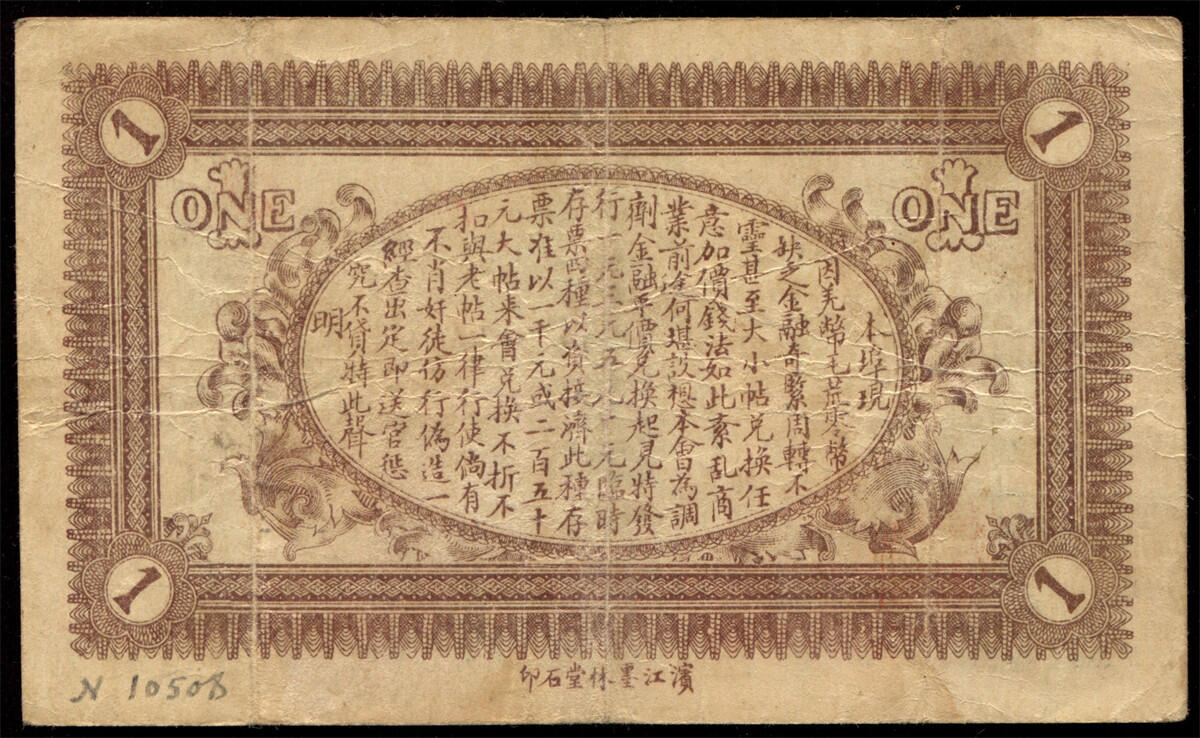 1
1
ONE
ONE
本埠現
因羌幣毛荒幣
缺乏金融奇緊周轉不
靈甚至大小帖兌換任
意加價錢法如此紊乱商
業前途何堪設想本會為調
劑金融平價兌換起見特發
行一元三元五元十元臨時
存票四種以資接濟此種存
票准以一千元或二百五十
元大帖来會兌換不折不
扣與老帖一律行使倘有
不肖奸徒仿行偽造一
經查出定即送官懲
究不貸特此聲
明
1
1
濱江墨林堂石印
N 10508